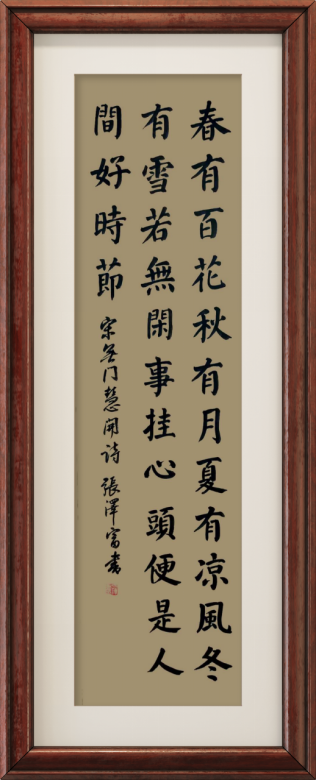 春有百花秋有月夏有凉風冬
有雪若無閑事挂心頭便是人
間好時節 宋無门慧開诗 張澤富書